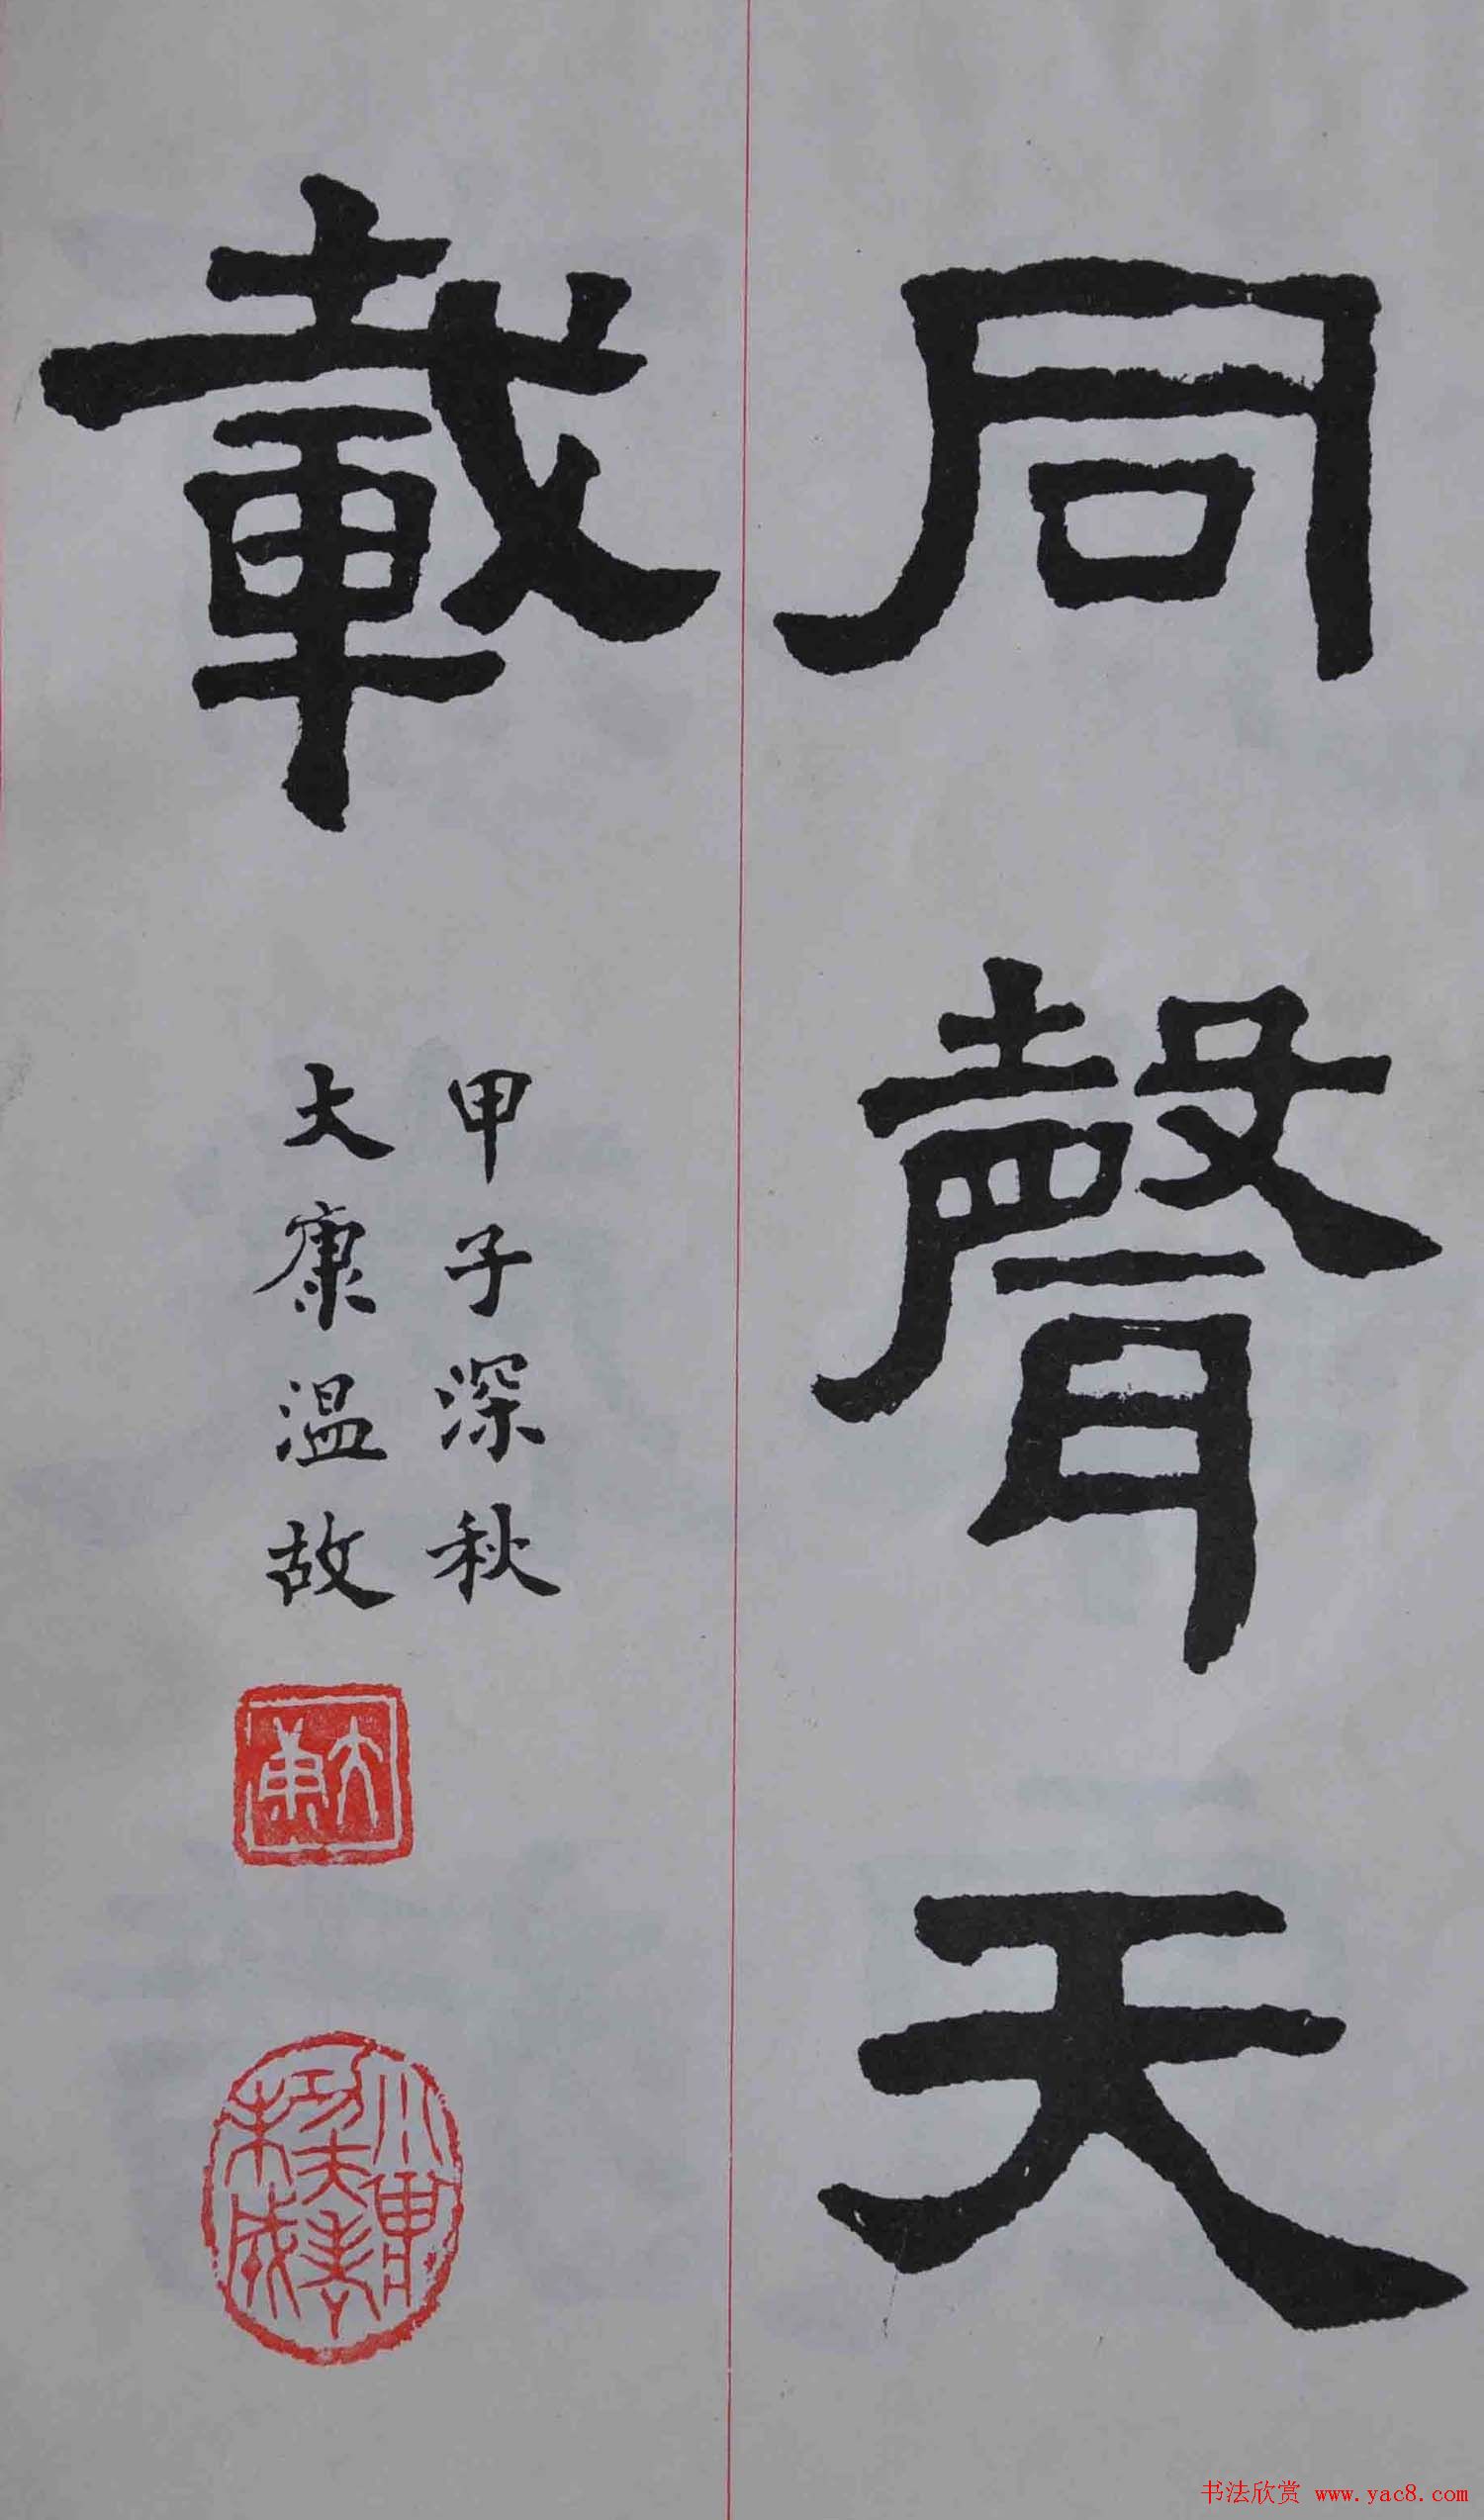 同聲天
載
甲子深秋
大康溫故
大康
書法欣赏 www.yac8.com